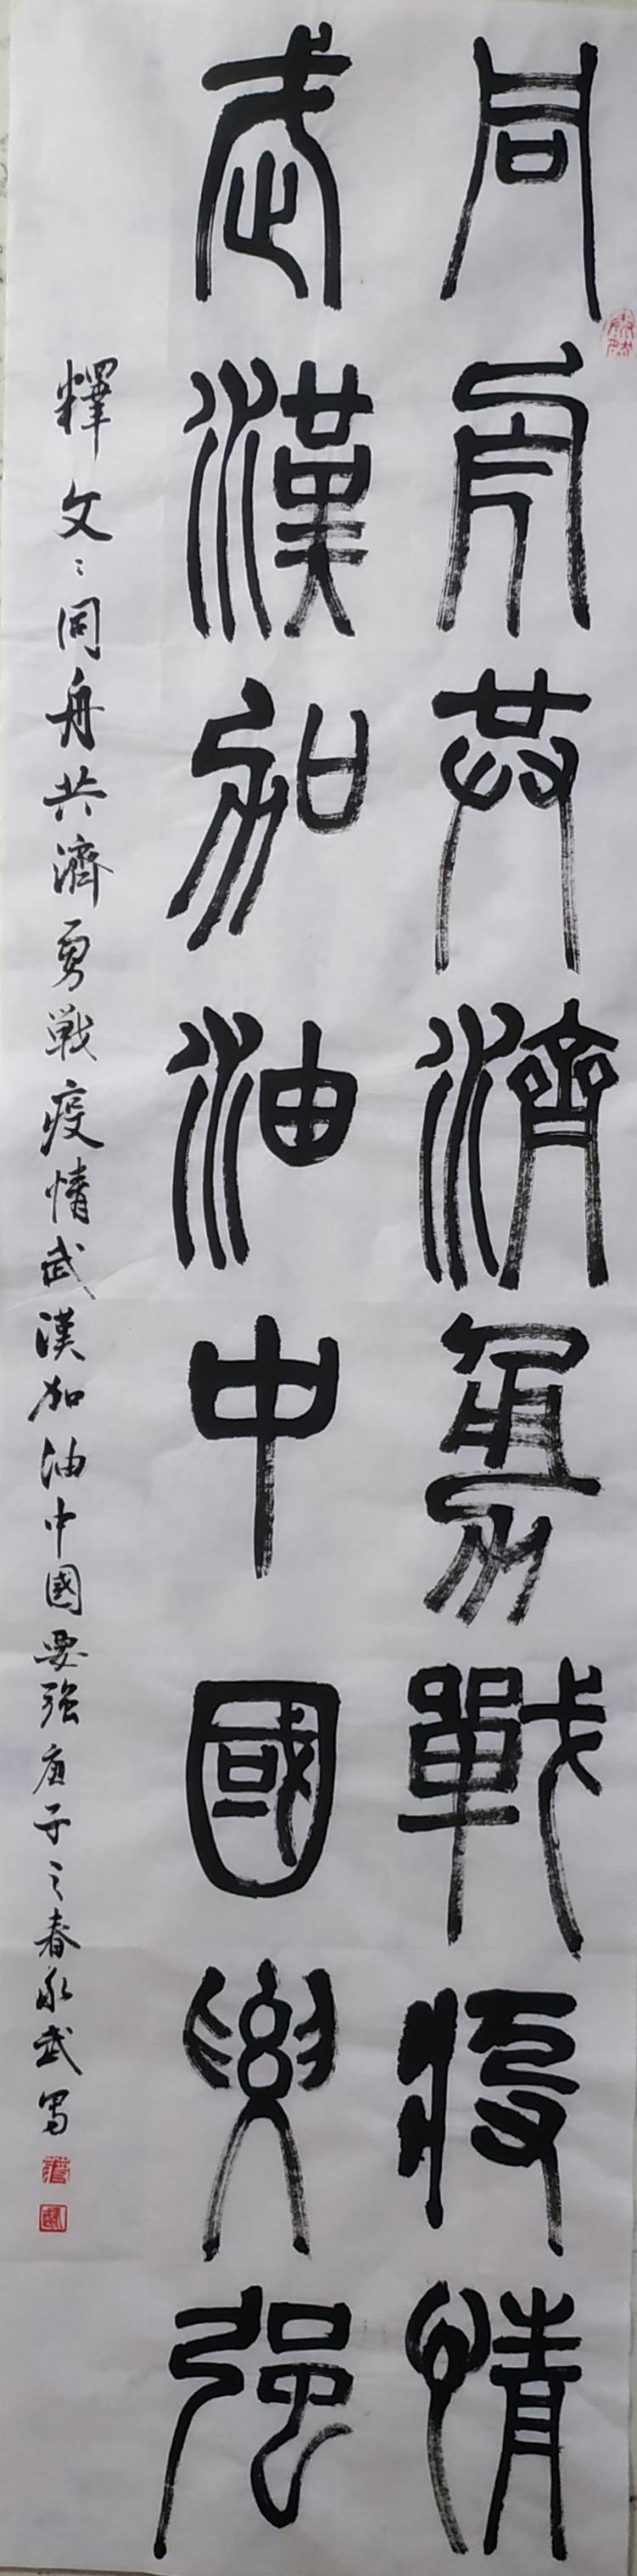 同舟共濟勇戰疫情
武漢加油中國要強
釋文：同舟共濟勇戰疫情武漢加油中國要強庚子之春永武写